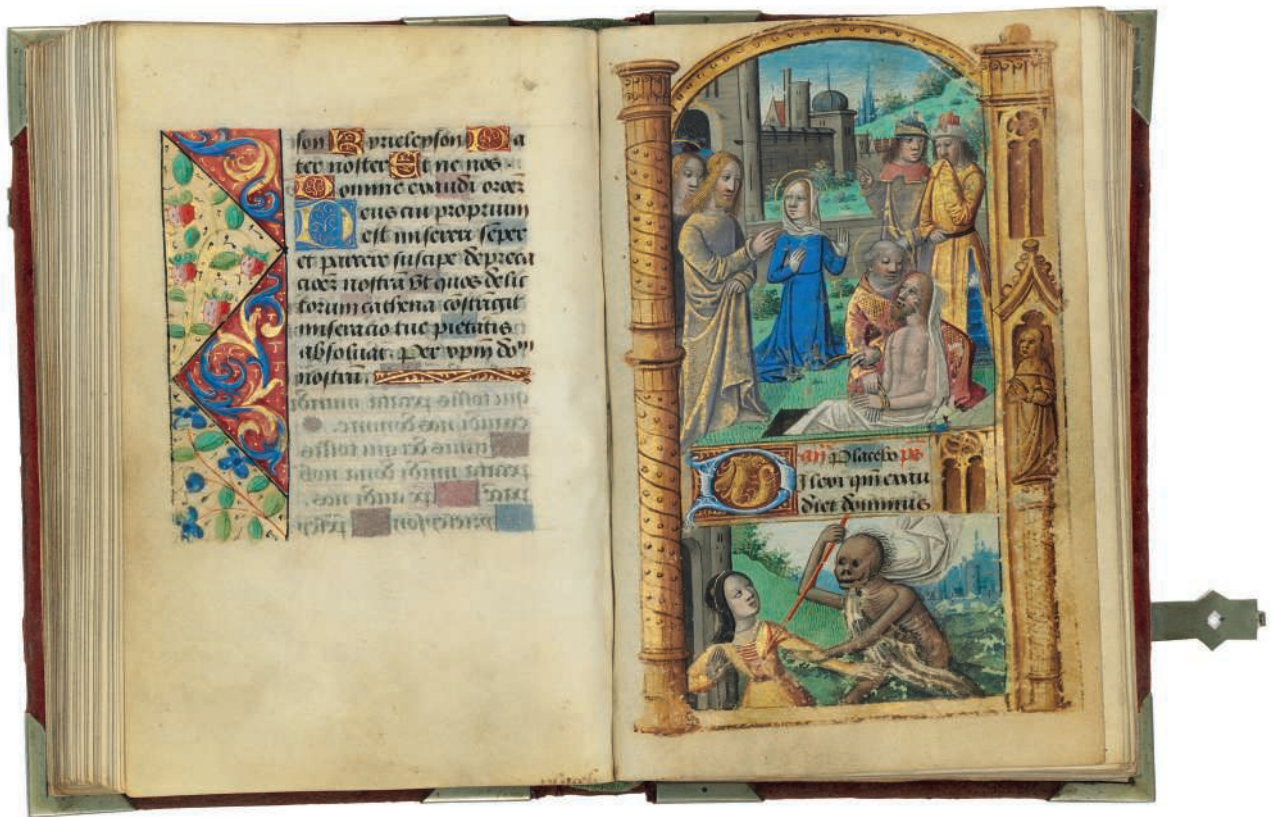 son Kyrieleyson Pa
ter noster Et ne nos
Domine exaudi oracõz
Deus cui proprium
est misereri semper
et parcere suscipe depreca
cioẽz nostrã Vt quos delic
torum cathena cõstrĩgit
miseracio tue pietatis
absoluat. Per xpm̃ dom̃
nostrũ.
añ Placebo ps
Dilexi qm̃ exau
diet dominus